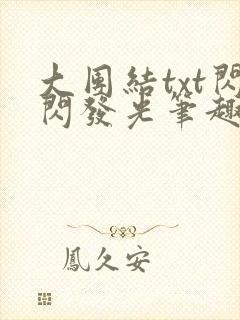 大团結txt閃
閃發光筆趣
鳳久安